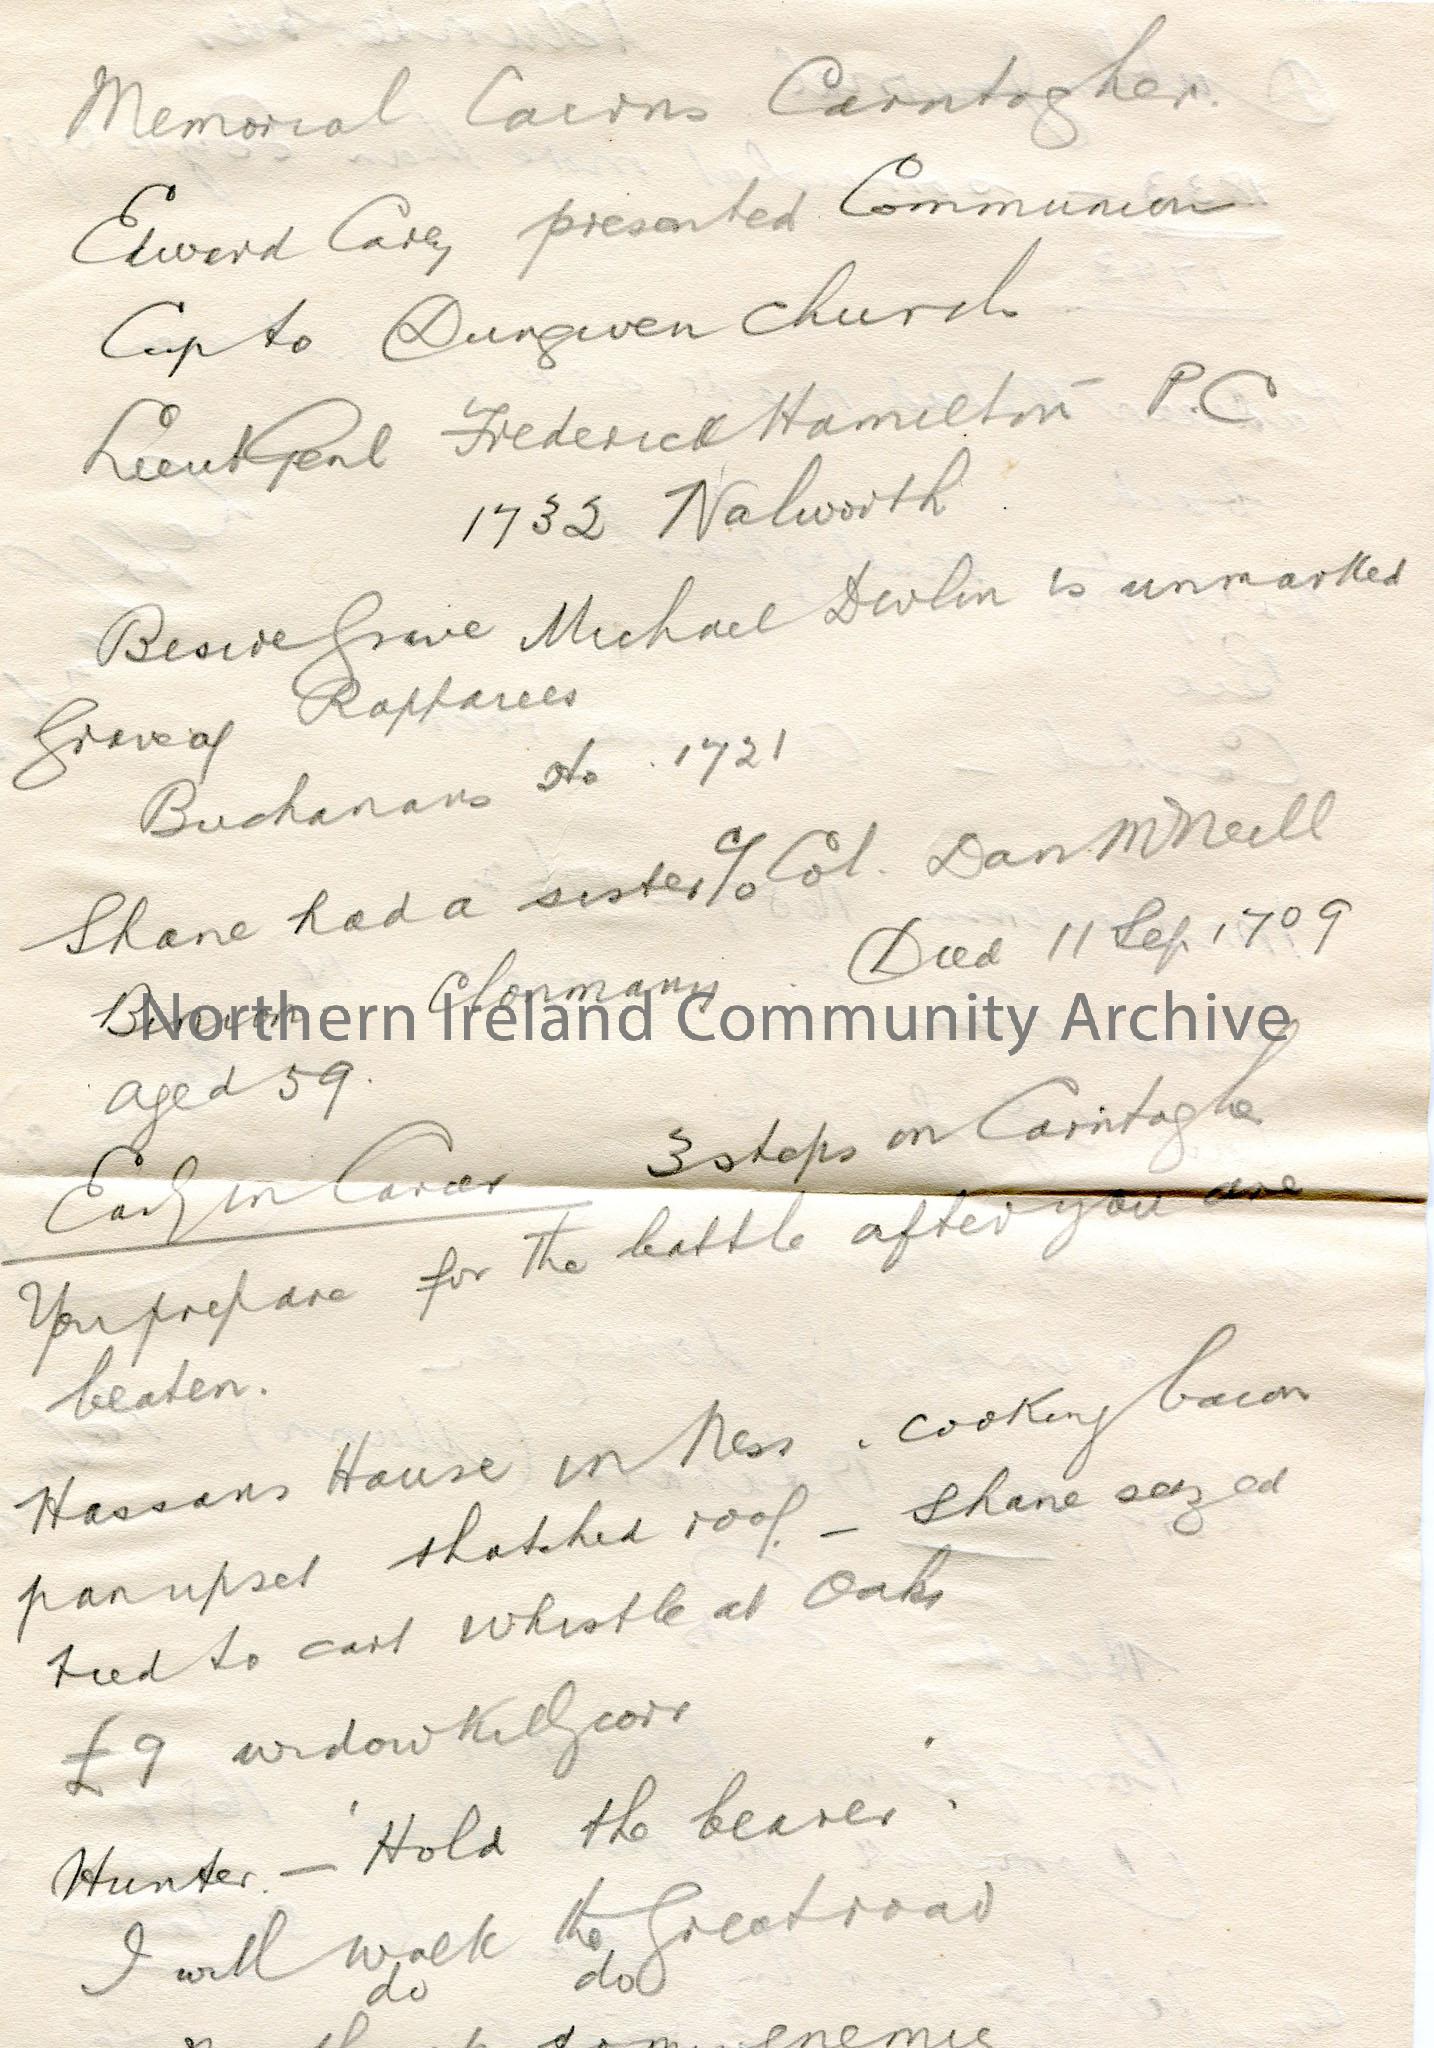 Memorial Cairns Carntogher.
Edward Carey presented Communion
Cup to Dungiven Church
Lieut Genl Frederick Hamilton P.C
1732 Walworth
Beside Grave Michael Devlin is unmarked
Grave of Rapparees
Buchanans do 1721
Shane had a sister c/o Col. Dan McNeill
Binion Clonmany. Died 11 Sep. 1709
aged 59.
Early in Career 3 steps on Carntogher
You prepare for the battle after you are
beaten.
Hassans House in Ness. cooking bacon
pan upset thatched roof. — Shane seized
tied to cart whistle at Oaks
£9 widow Killgore
Hunter. — 'Hold the bearer'.
I will walk the Great road
do do
to my enemie
Northern Ireland Community Archive